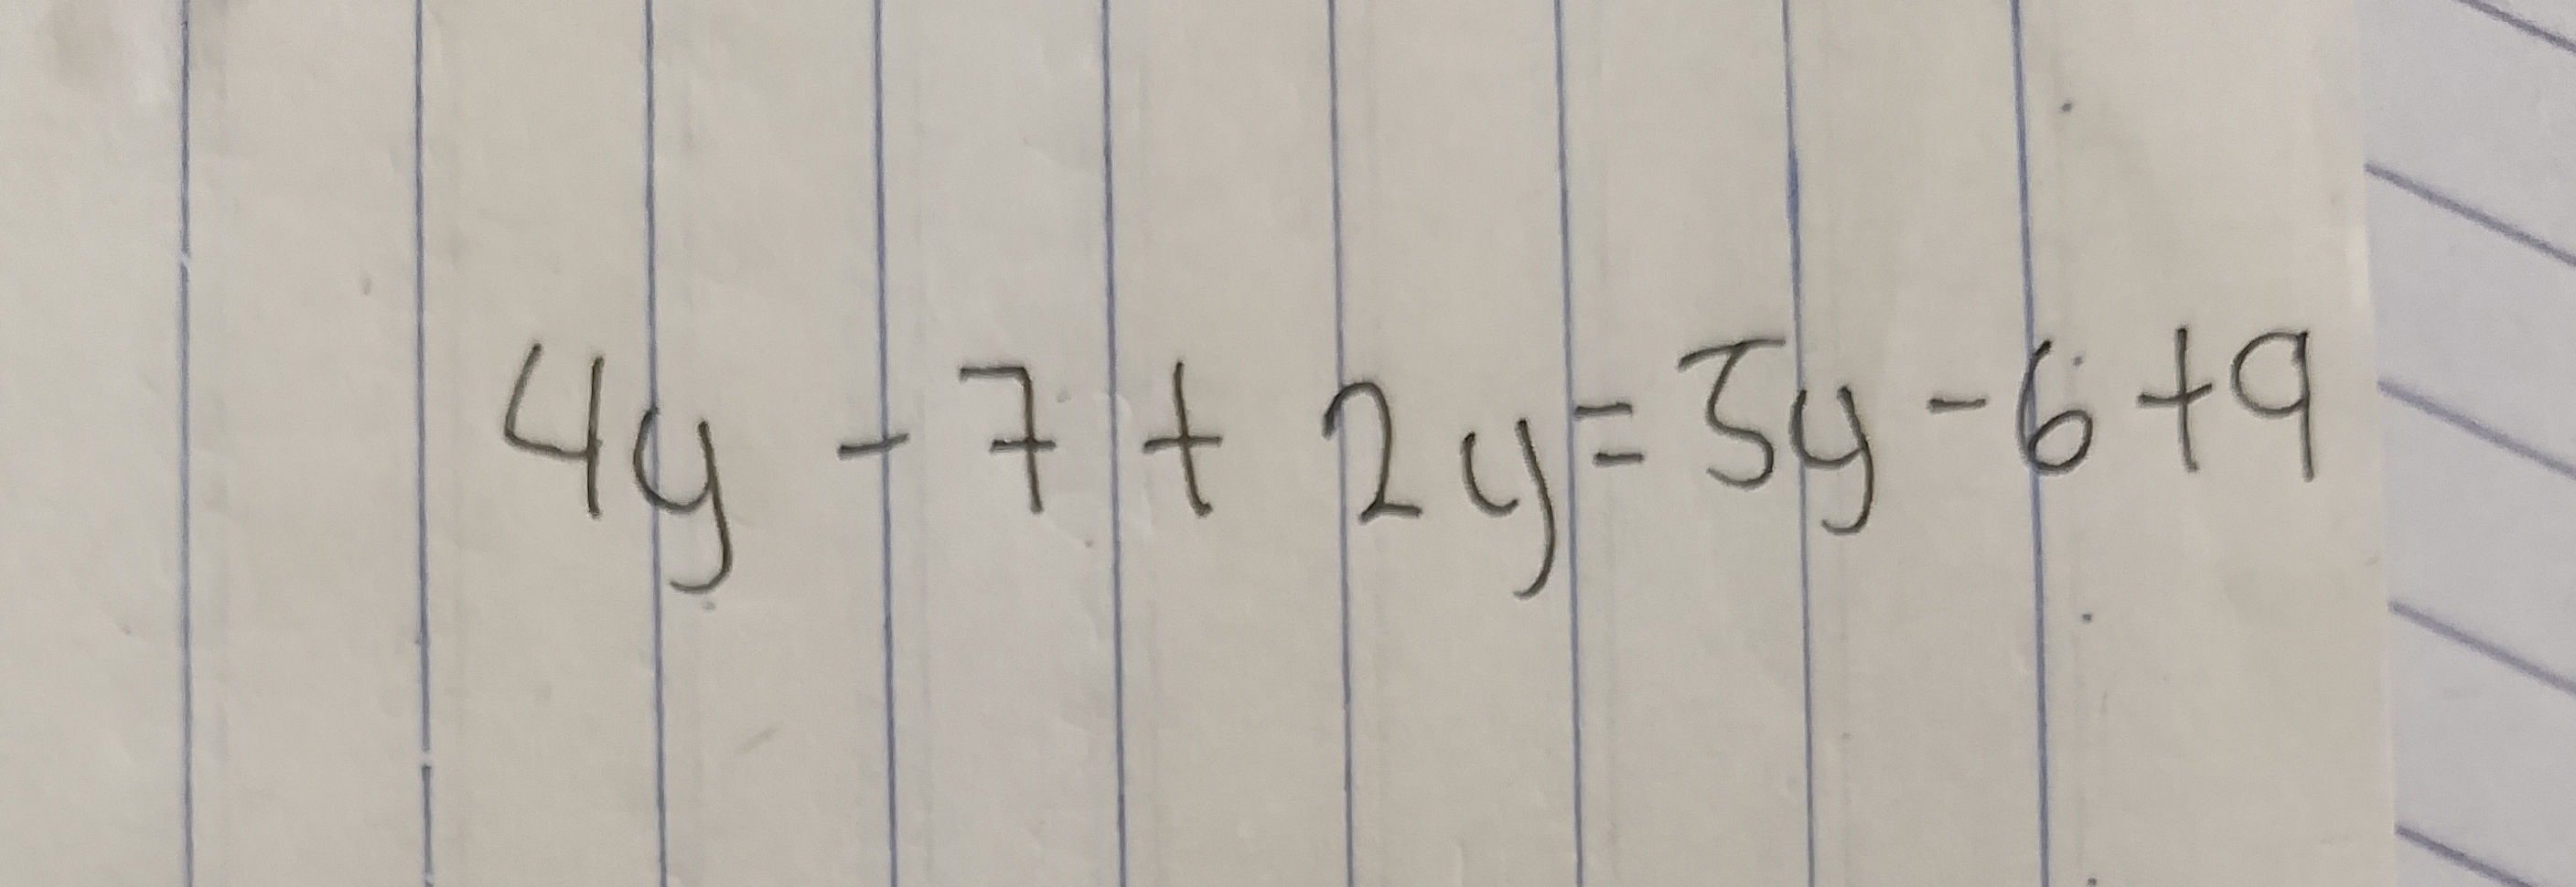 4y - 7 + 2y = 5y - 6 + 9